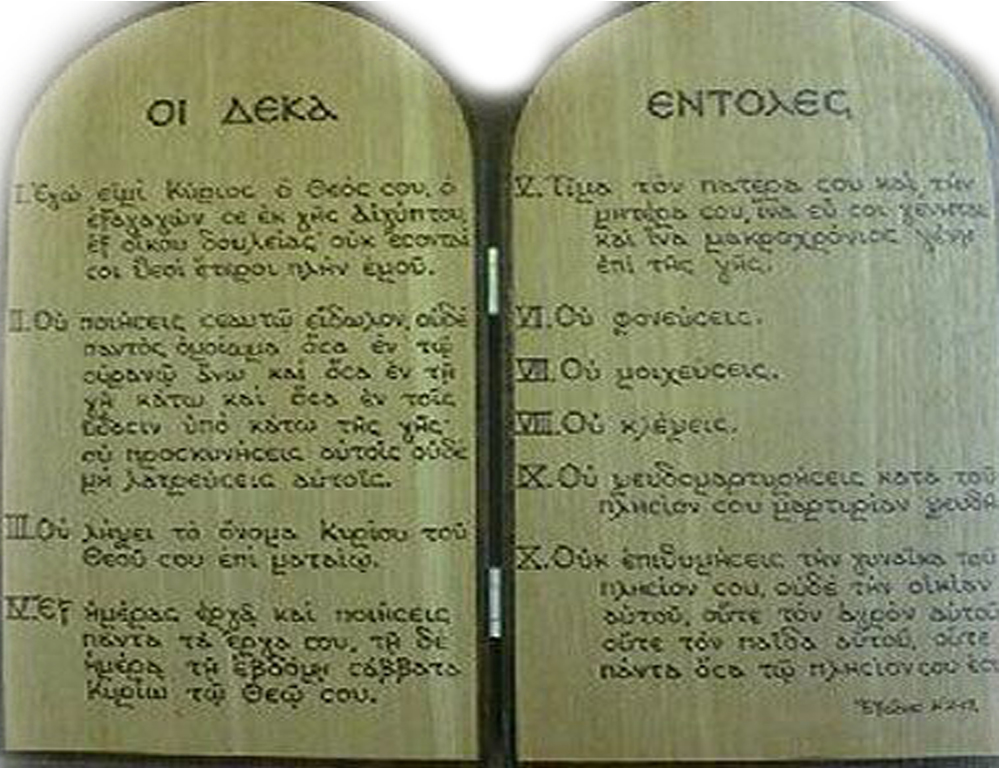 ΟΙ ΔΕΚΑ
I. Ἐγώ εἰμί Κύριος ὁ Θεός σου, ὁ
ἐξαγαγών σε ἐκ γῆς Αἰγύπτου,
ἐξ οἴκου δουλείας, οὐκ ἔσονται
σοι θεοί ἕτεροι πλήν ἐμοῦ.
II. Οὐ ποιήσεις σεαυτῷ εἴδωλον, οὐδέ
παντός ὁμοίωμα ὅσα ἐν τῷ
οὐρανῷ ἄνω καί ὅσα ἐν τῇ
γῇ κάτω καί ὅσα ἐν τοῖς
ὕδασιν ὑπό κάτω τῆς γῆς·
οὐ προσκυνήσεις αὐτοῖς οὐδέ
μή λατρεύσεις αὐτοῖς.
III. Οὐ λήψει τό ὄνομα Κυρίου τοῦ
Θεοῦ σου ἐπί ματαίῳ.
IV. Ἕξ ἡμέρας ἐργᾷ καί ποιήσεις
πάντα τά ἔργα σου, τῇ δέ
ἡμέρᾳ τῇ ἑβδόμῃ σάββατα
Κυρίῳ τῷ Θεῷ σου.
ΕΝΤΟΛΕΣ
V. Τίμα τόν πατέρα σου καί τήν
μητέρα σου, ἵνα εὖ σοι γένηται
καί ἵνα μακροχρόνιος γένῃ
ἐπί τῆς γῆς.
VI. Οὐ φονεύσεις.
VII. Οὐ μοιχεύσεις.
VIII. Οὐ κλέψεις.
IX. Οὐ ψευδομαρτυρήσεις κατά τοῦ
πλησίον σου μαρτυρίαν ψευδῆ
X. Οὐκ ἐπιθυμήσεις τήν γυναῖκα τοῦ
πλησίον σου, οὐδέ τήν οἰκίαν
αὐτοῦ, οὔτε τόν ἀγρόν αὐτοῦ
οὔτε τόν παῖδα αὐτοῦ, οὔτε
πάντα ὅσα τῷ πλησίον σου